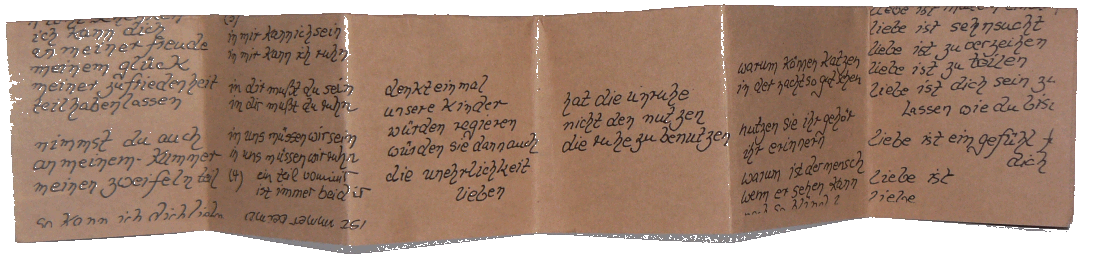 ich kann dich
an meiner freude
meinem glück
meiner zufriedenheit
teilhabenlassen
nimmst du auch
an meinem kummer
meinen zweifeln teil
so kann ich dich lieben
in mir kann ich sein
in mir kann ich ruhn
in dir mußt du sein
in dir mußt du ruhn
in uns müssen wir sein
in uns müssen wir ruhn
(4) ein teil von uns
ist immer beid
denkt einmal
unsere kinder
würden regieren
würden sie dann auch
die unehrlichkeit
lieben
hat die unruhe
nicht den nutzen
die ruhe zu benutzen
warum können katzen
in der nacht so gut sehen
nutzen sie ihr gehör
ihr erinnern
warum ist der mensch
wenn er sehen kann
liebe ist sehnsucht
liebe ist zu verzeihen
liebe ist zu teilen
liebe ist dich sein zu
lassen wie du bist
liebe ist ein gefühl
dich
liebe ist
liebe